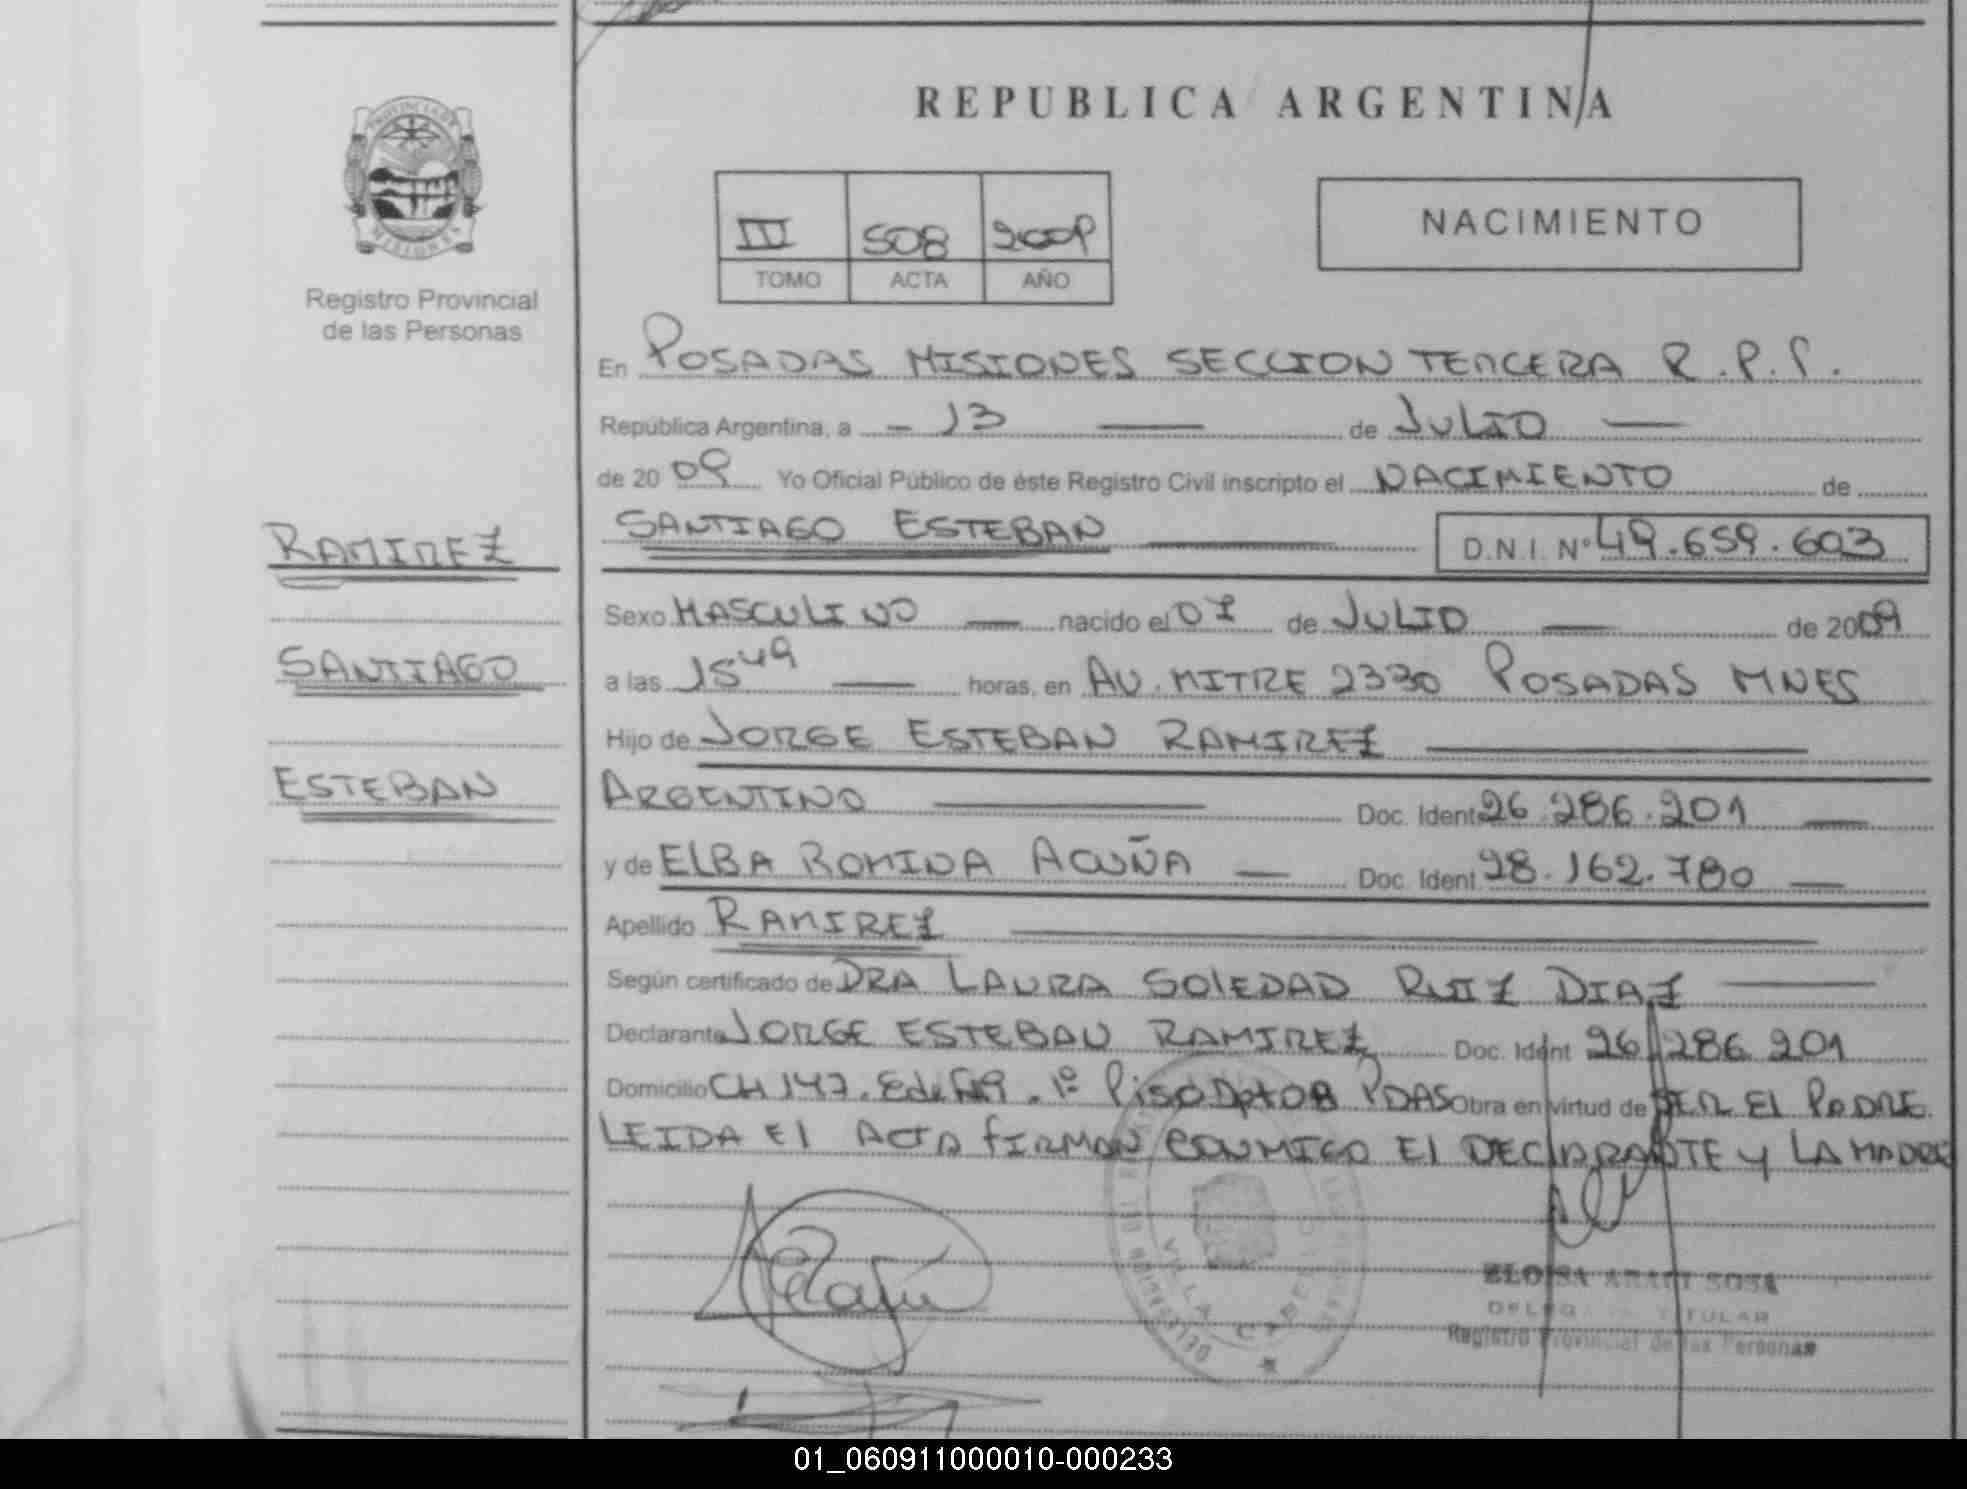 REPUBLICA ARGENTINA
PROVINCIA DE
MISIONES
Registro Provincial
de las Personas
III 508 2009
TOMO ACTA AÑO
NACIMIENTO
En POSADAS MISIONES SECCION TERCERA R.P.P.
República Argentina, a - 13 — de JULIO —
de 2009 Yo Oficial Público de éste Registro Civil inscripto el NACIMIENTO de
RAMIREZ
SANTIAGO
ESTEBAN
SANTIAGO ESTEBAN — D.N.I. Nº 49.659.603
Sexo MASCULINO — nacido el 07 de JULIO — de 2009
a las 15 49 — horas, en AV. MITRE 2330 POSADAS MNES
Hijo de JORGE ESTEBAN RAMIREZ —
ARGENTINO — Doc. Ident 26.286.201 —
y de ELBA ROMINA ACUÑA — Doc. Ident. 28.162.780 —
Apellido RAMIREZ —
Según certificado de DRA LAURA SOlEDAD RUIZ DIAZ —
Declarante JORGE ESTEBAN RAMIREZ Doc. Ident 26.286.201
Domicilio CH 147. Edif. 19. 1º Piso Dpto B PDAS Obra en virtud de SER El PADRE
LEIDA El ACTA fIRMAN CONMIGO El DECLARANTE y LA MADRE
VILLA CABELLO
ELOISA ARACI SOSA
DELEGADA TITULAR
Registro Provincial de las Personas
01_060911000010-000233